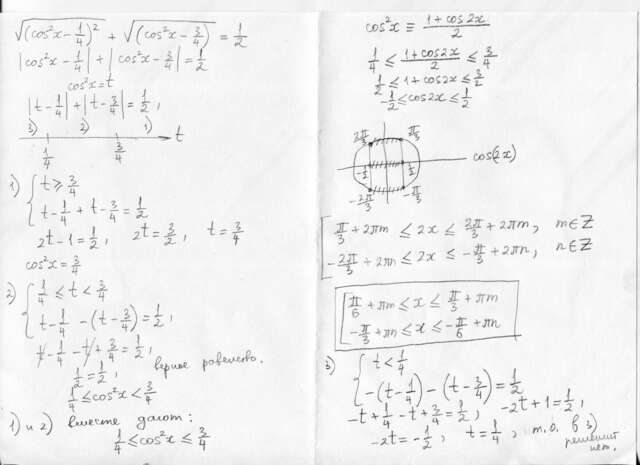 √(cos²x - 1/4)² + √(cos²x - 3/4) = 1/2
|cos²x - 1/4| + |cos²x - 3/4| = 1/2
cos²x = t
|t - 1/4| + |t - 3/4| = 1/2,
3) 2) 1) t
1/4 3/4
1) { t ⩾ 3/4
t - 1/4 + t - 3/4 = 1/2
2t - 1 = 1/2, 2t = 3/2, t = 3/4
cos²x = 3/4
2) { 1/4 ≤ t < 3/4
t - 1/4 - (t - 3/4) = 1/2,
t - 1/4 - t + 3/4 = 1/2,
1/2 = 1/2, верное равенство.
1/4 ≤ cos²x < 3/4
1) и 2) вместе дают:
1/4 ≤ cos²x ≤ 3/4
cos²x ≡ (1 + cos2x)/2
1/4 ≤ (1 + cos2x)/2 ≤ 3/4
1/2 ≤ 1 + cos2x ≤ 3/2
-1/2 ≤ cos2x ≤ 1/2
2π/3 π/3
-1/2 1/2 cos(2x)
-2π/3 -π/3
[ π/3 + 2πm ≤ 2x ≤ 2π/3 + 2πm, m∈Z
-2π/3 + 2πn ≤ 2x ≤ -π/3 + 2πn, n∈Z
[ π/6 + πm ≤ x ≤ π/3 + πm
-π/3 + πn ≤ x ≤ -π/6 + πn
3) { t < 1/4
-(t - 1/4) - (t - 3/4) = 1/2
-t + 1/4 - t + 3/4 = 1/2, -2t + 1 = 1/2,
-2t = -1/2, t = 1/4, т.о. в 3)
решений
нет.